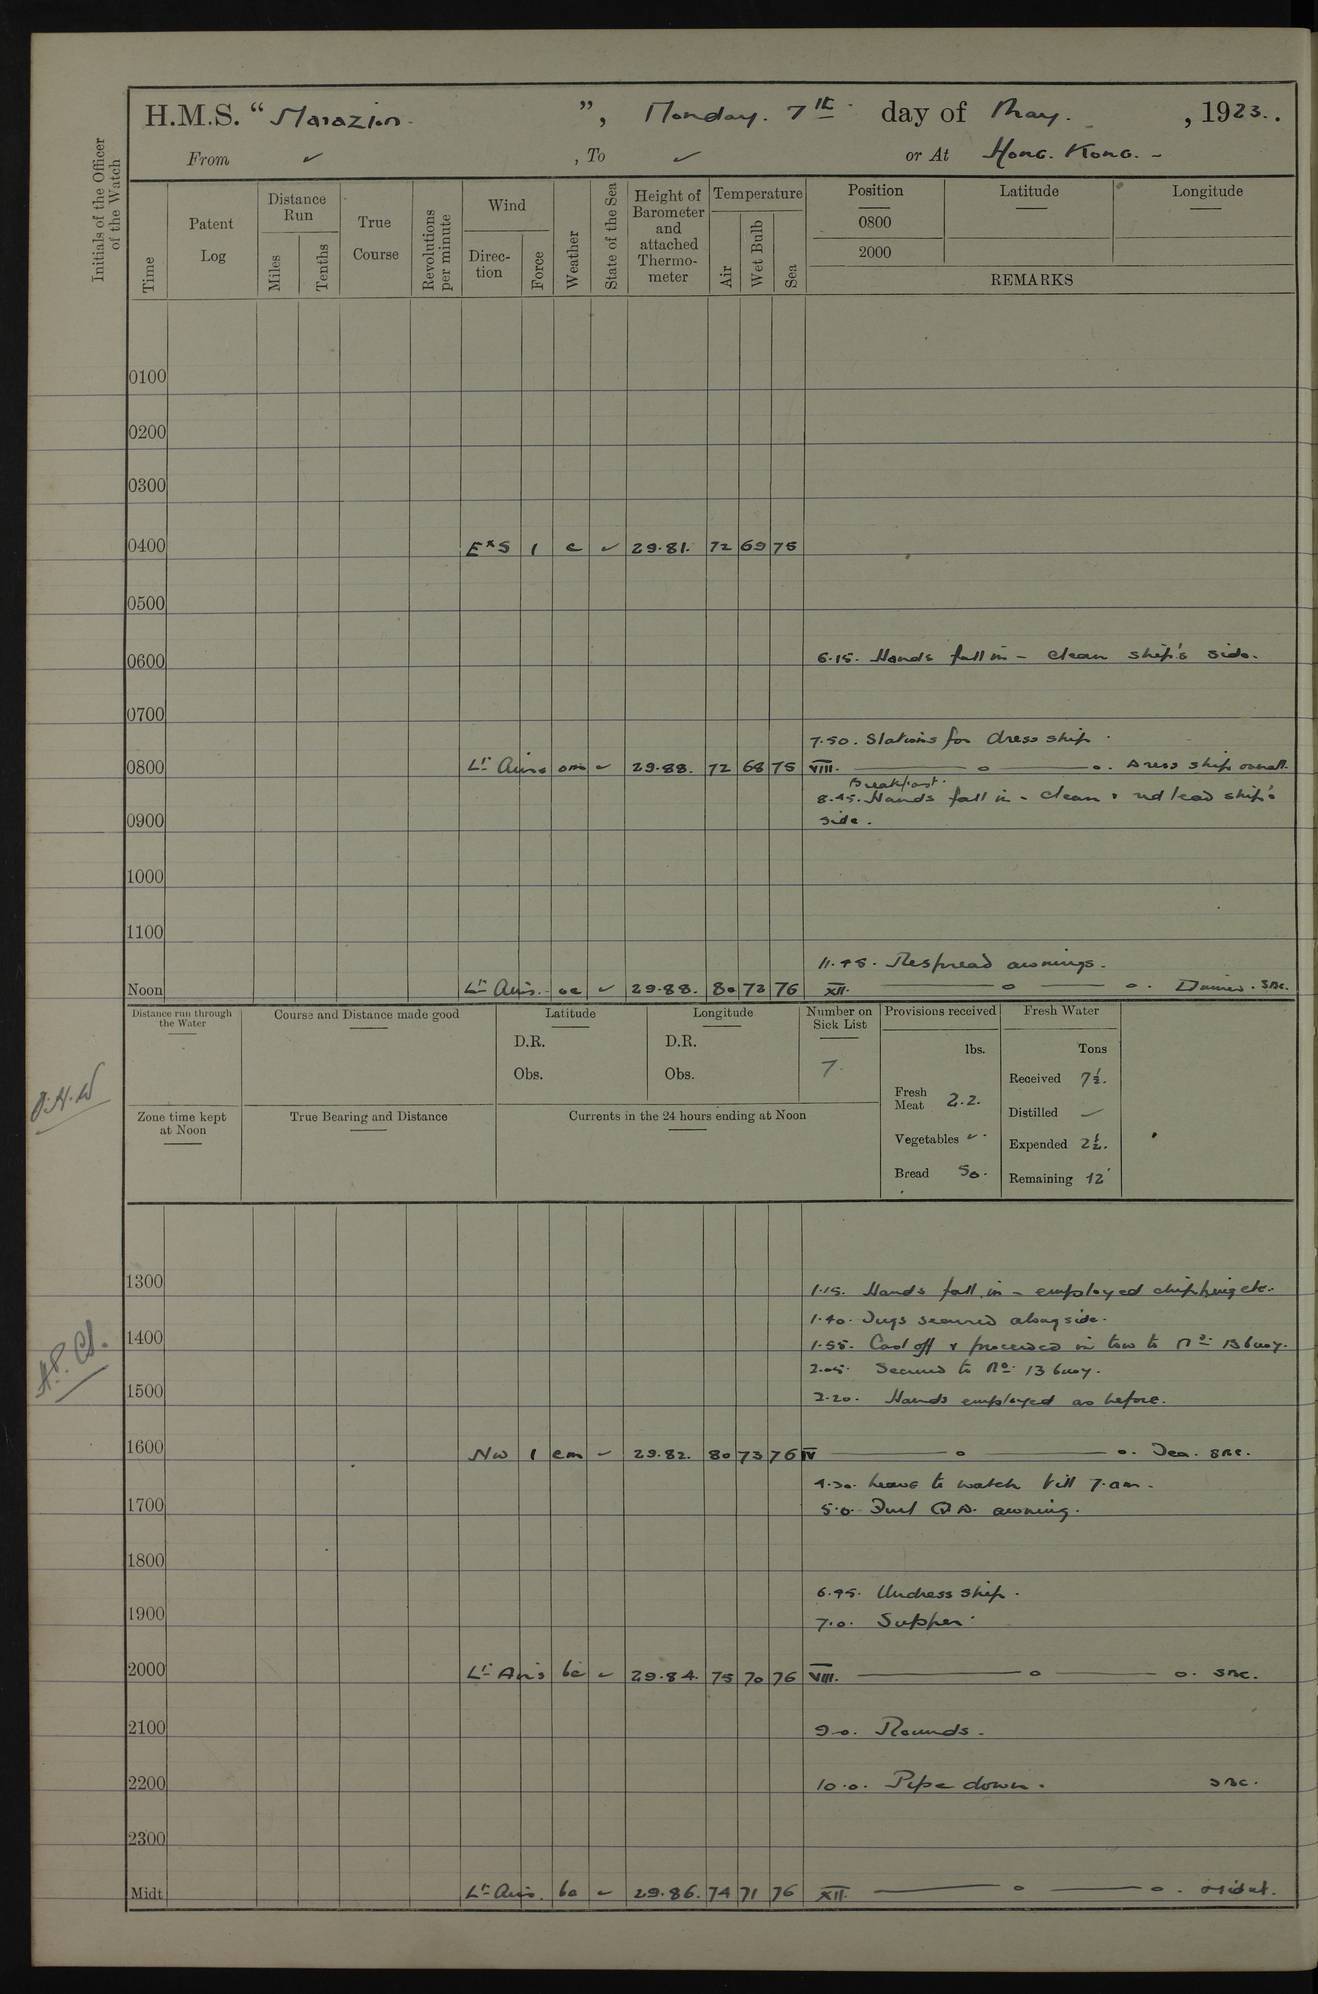 H.M.S. “ Marazion ”, Monday. 7th day of May. , 1923.
From ✓ , To ✓ or At Hong. Kong. -
Initials of the Officer of the Watch
Time
Patent Log
Distance Run
Miles
Tenths
True Course
Revolutions per minute
Wind
Direction
Force
Weather
State of the Sea
Height of Barometer and attached Thermometer
Temperature
Air
Wet Bulb
Sea
Position
Latitude
Longitude
0800
2000
REMARKS
0100
0200
0300
0400 ExS 1 c ✓ 29.81. 72 69 75
0500
0600 6.15. Hands fall in - clean ship's side.
0700
7.50. Stations for dress ship.
0800 Lt Airs om ✓ 29.88. 72 68 75 VIII. Dress ship overall.
Breakfast.
8.45. Hands fall in - clean & red lead ship's
0900 side.
1000
1100
11.45. Respread awnings.
Noon Lt Airs. oc ✓ 29.88. 80 73 76 XII. Dinner. SRC.
Distance run through the Water
Course and Distance made good
Latitude
D.R.
Obs.
Longitude
D.R.
Obs.
Number on Sick List
7.
Provisions received
lbs.
Fresh Meat 22.
Vegetables ✓.
Bread 50.
Fresh Water
Tons
Received 7½.
Distilled
Expended 2½.
Remaining 12
Zone time kept at Noon
True Bearing and Distance
Currents in the 24 hours ending at Noon
1300 1.15. Hands fall in - employed chipping etc.
1.40. Tugs secured alongside.
1400 1.55. Cast off & proceeded in tow to No. 13 buoy.
2.05. Secured to No. 13 buoy.
1500 2.20. Hands employed as before.
1600 NW 1 cm ✓ 29.82. 80 73 76 IV Tea. SRC.
4.30. Leave to watch till 7.am.
1700 5.0. Furl Q.D. awning.
1800
6.45. Undress ship.
1900 7.0. Supper.
2000 Lt Airs bc ✓ 29.84. 75 70 76 VIII. SRC.
2100 9.0. Rounds.
2200 10.0. Pipe down. SRC.
2300
Midt Lt Airs. bc ✓ 29.86. 74 71 76 XII.